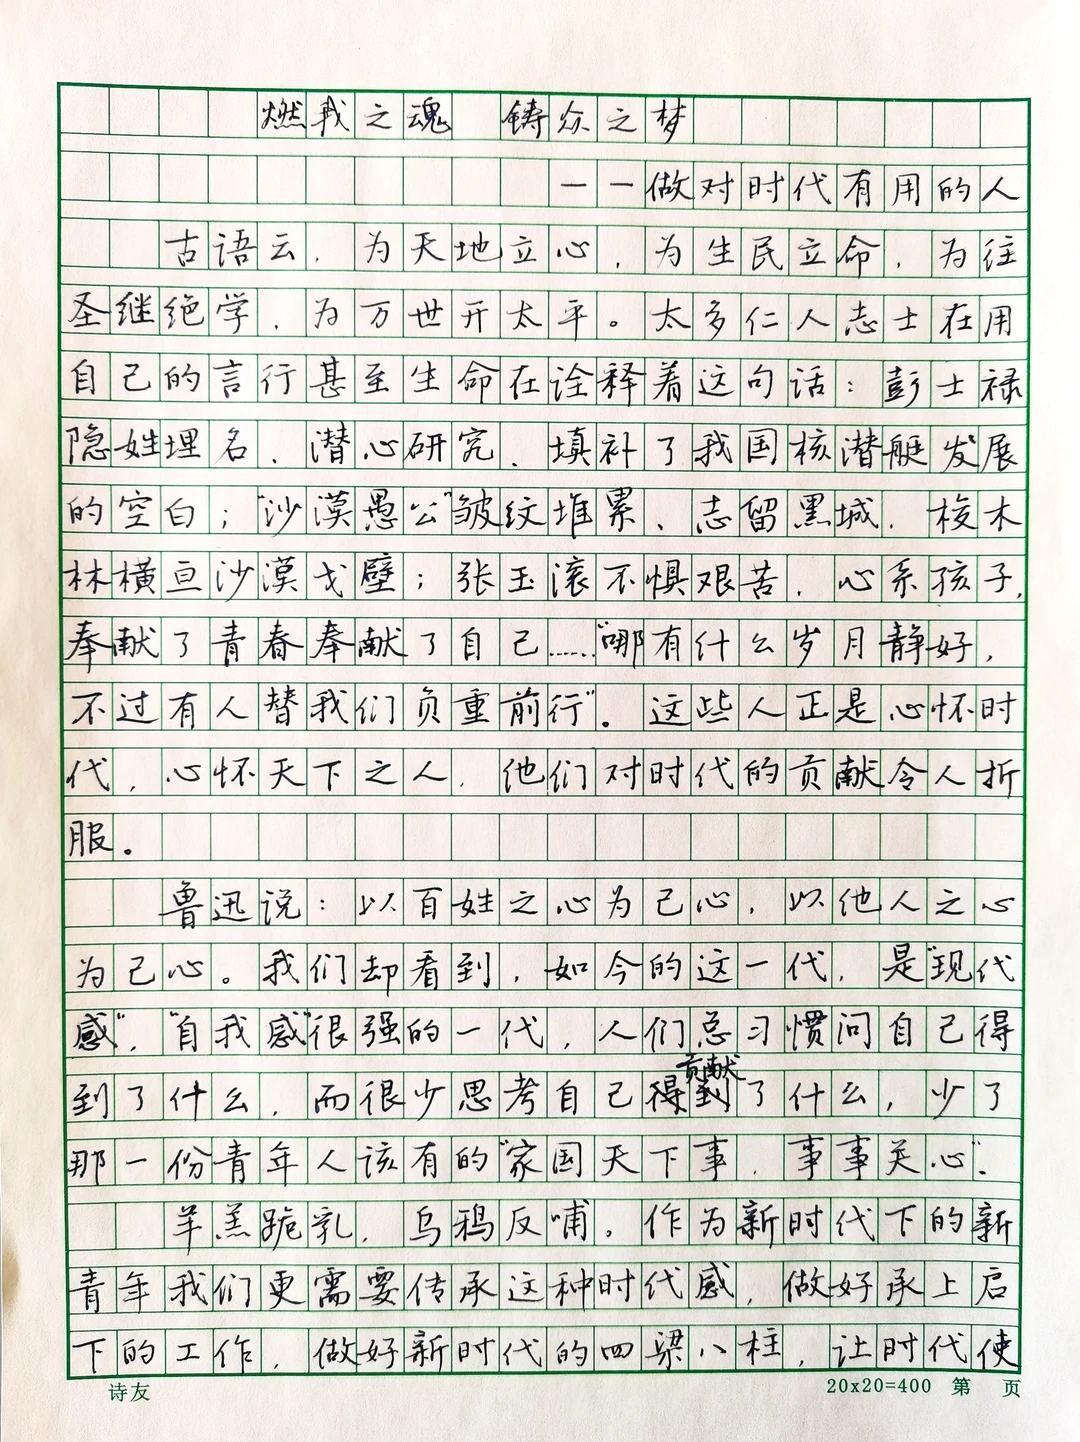 燃我之魂 铸众之梦
——做对时代有用的人
古语云，为天地立心，为生民立命，为往
圣继绝学，为万世开太平。太多仁人志士在用
自己的言行甚至生命在诠释着这句话：彭士禄
隐姓埋名、潜心研究、填补了我国核潜艇发展
的空白；“沙漠愚公”皱纹堆累、志留黑城，梭木
林横亘沙漠戈壁；张玉滚不惧艰苦，心系孩子，
奉献了青春奉献了自己……“哪有什么岁月静好，
不过有人替我们负重前行”。这些人正是心怀时
代，心怀天下之人，他们对时代的贡献令人折
服。
鲁迅说：以百姓之心为己心，以他人之心
为己心。我们却看到，如今的这一代，是“现代
感”，“自我感”很强的一代，人们总习惯问自己得
到了什么，而很少思考自己贡献了什么，少了
那一份青年人该有的“家国天下事，事事关心”。
羊羔跪乳，乌鸦反哺。作为新时代下的新
青年我们更需要传承这种时代感，做好承上启
下的工作，做好新时代的四梁八柱，让时代使
诗友 20x20=400 第 页